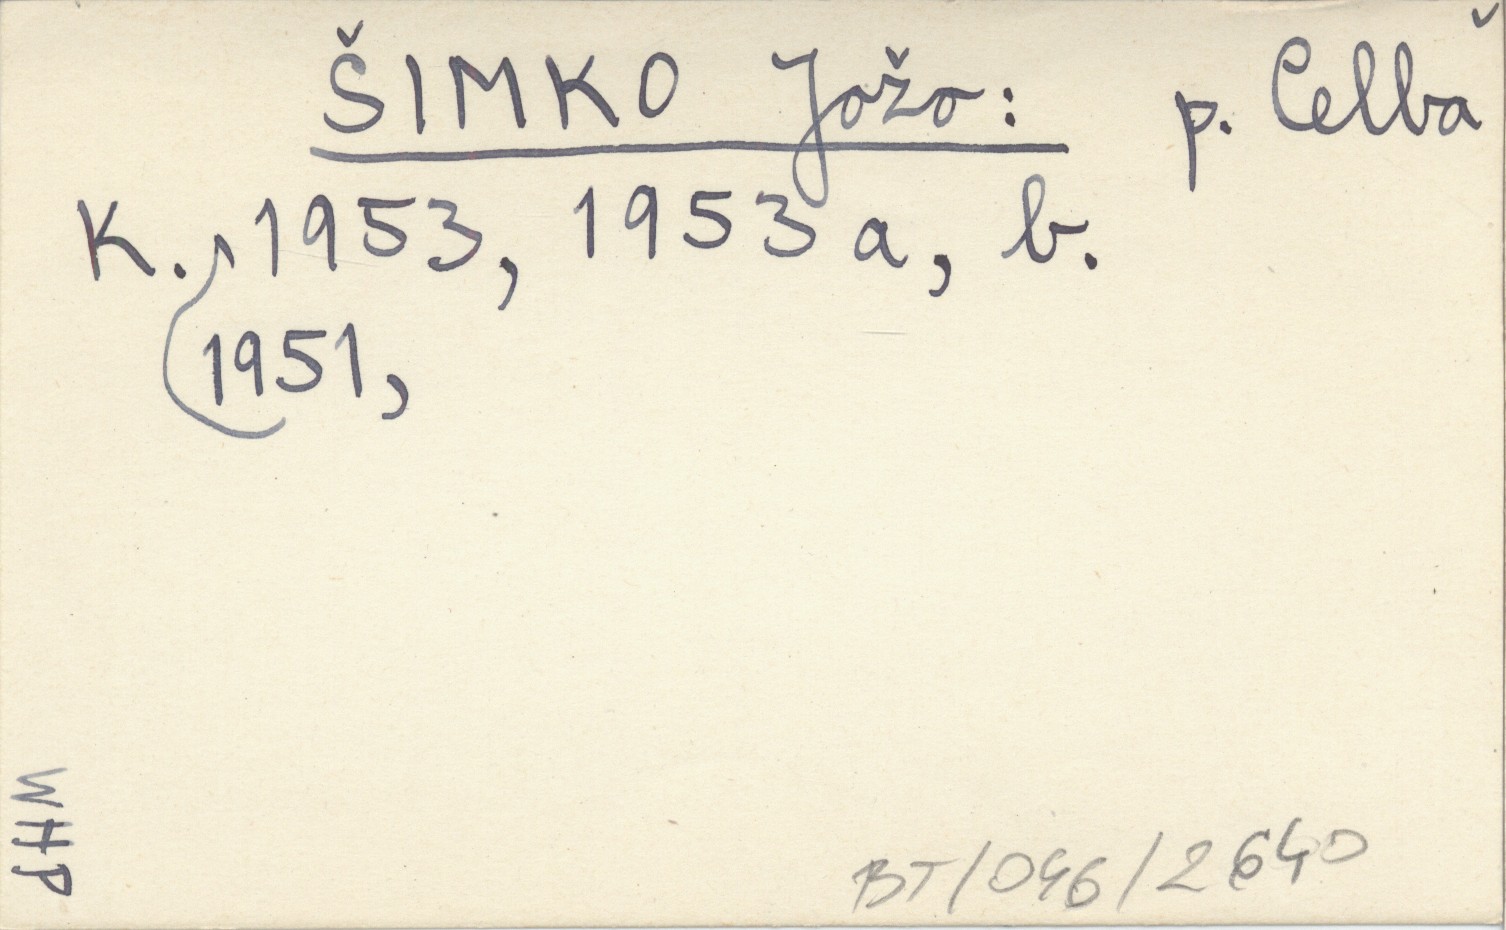 ŠIMKO Jožo: p. Celba
K. 1953, 1953 a, b.
1951,
WHP
BT/046/2640